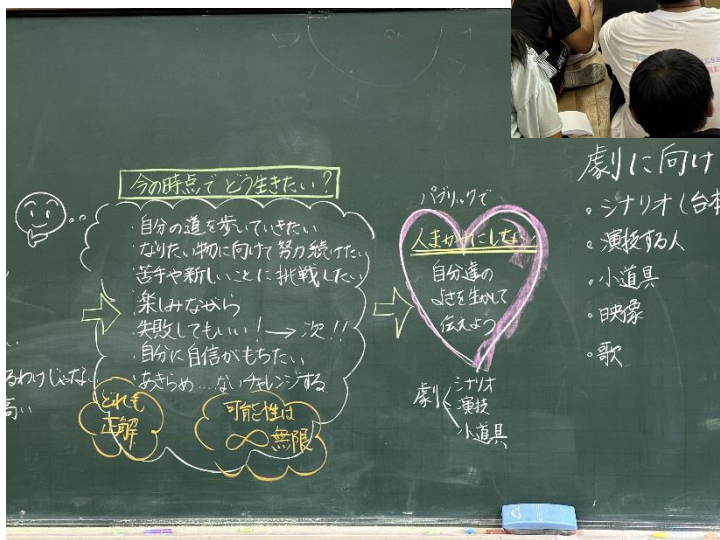 今の時点でどう生きたい？
・自分の道を歩いていきたい
・なりたい物に向けて努力続けたい
・苦手や新しいことに挑戦したい
・楽しみながら
・失敗してもいい！→次!!
・自分に自信がもちたい
・あきらめ...ないチャレンジする
どれも
正解
可能性は
∞無限
るわけじゃない
高い
パブリックで
人まかせにしない
自分達の
よさを生かして
伝えよう
劇
シナリオ
演技
小道具
劇に向け
・シナリオ(台本
・演技する人
・小道具
・映像
・歌